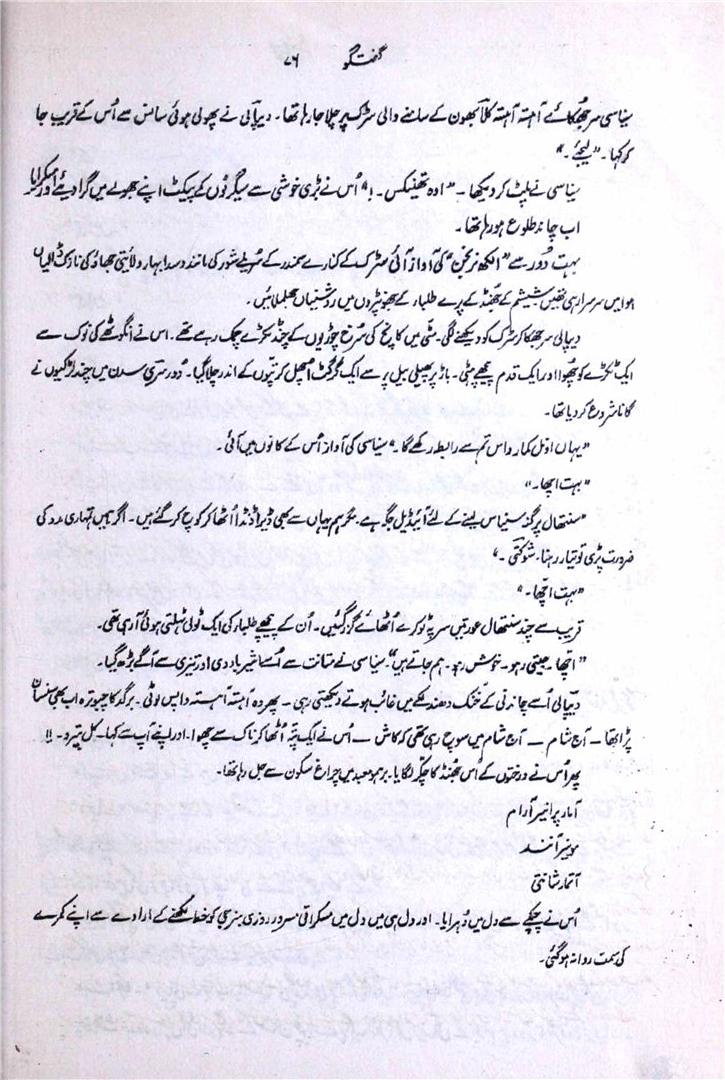 گفتگو ۷۶
سنیاسی سر جھکائے آہستہ آہستہ کلا بھون کے سامنے والی سڑک پر چلا جا رہا تھا۔ دیپالی نے پھولی ہوئی سانس سے اُس کے قریب جا
کر کہا۔ ”لیجئے۔“
سنیاسی نے پلٹ کر دیکھا۔ ”اوہ تھینکس۔!“ اُس نے بڑی خوشی سے سگرٹوں کے پیکٹ اپنے جھولے میں گرا دیئے اور مسکرایا
اب چاند طلوع ہو رہا تھا۔
بہت دُور سے ”الکھ نرنجن“ کی آواز آئی سڑک کے کنارے سمندر کے سُریلے شور کی مانند سدابہار ولائتی جھاؤ کی نازک ڈالیاں
ہوا میں سرسرا رہی تھیں شیشم کے جُھنڈ کے پرے طلباء کے جھونپڑوں میں روشنیاں جھلملائیں۔
دیپالی سر جھکا کر سڑک کو دیکھنے لگی۔ مٹی میں کانچ کی سُرخ چوڑیوں کے چند ٹکڑے چمک رہے تھے۔ اس نے انگوٹھے کی نوک سے
ایک ٹکڑے کو چُھوا اور ایک قدم پیچھے ہٹی۔ باڑ پر پھیلی بیل پر سے ایک گرگٹ اُچھل کر پتوں کے اندر چلا گیا۔ دُور سری سدن میں چند لڑکیوں نے
گانا شروع کر دیا تھا۔
”یہاں اونل کمار داس تم سے رابطہ رکھے گا۔“ سنیاسی کی آواز اُس کے کانوں میں آئی۔
”بہت اچھا۔“
”سنتھال پرگنہ سنیاس لینے کے لئے آئیڈیل جگہ ہے۔ مگر ہم یہاں سے بھی ڈیرا ڈنڈا اُٹھا کر کوچ کر گئے ہیں۔ اگر ہمیں تمہاری مدد کی
ضرورت پڑی تو تیار رہنا۔ شکتی۔“
”بہت اچھا۔“
قریب سے چند سنتھال عورتیں سر پہ ٹوکرے اُٹھائے گزر گئیں۔ اُن کے پیچھے طلباء کی ایک ٹولی ٹہلتی ہوئی آ رہی تھی۔
”اچھا۔ جیتی رہو۔ خوش رہو۔ ہم جاتے ہیں“۔ سنیاسی نے متانت سے اُسے اشیر باد دی اور تیزی سے آگے بڑھ گیا۔
دیپالی اُسے چاندنی کے خُنک دھندلکے میں غائب ہوتے دیکھتی رہی۔ پھر وہ آہستہ آہستہ واپس لوٹی۔ برگد کا چبوترہ اب بھی سنسان
پڑا تھا۔ آج شام ـ آج شام میں سوچ رہی تھی کہ کاش ـ اُس نے ایک پتہ اُٹھا کر ناک سے چھوا۔ اور اپنے آپ سے کہا۔ کل بتیرو۔!!
پھر اُس نے درختوں کے اُس جُھنڈ کا چکر لگایا۔ برہمو مندر میں چراغ سکون سے جل رہا تھا۔
آمار پرانیر آرام
مونیر آنند
آتمار شانتی
اُس نے چپکے سے دل میں دُہرایا۔ اور دل ہی دل میں مسکراتی مسرور روزی بنرجی کو خط لکھنے کے ارادے سے اپنے کمرے
کی سمت روانہ ہو گئی۔